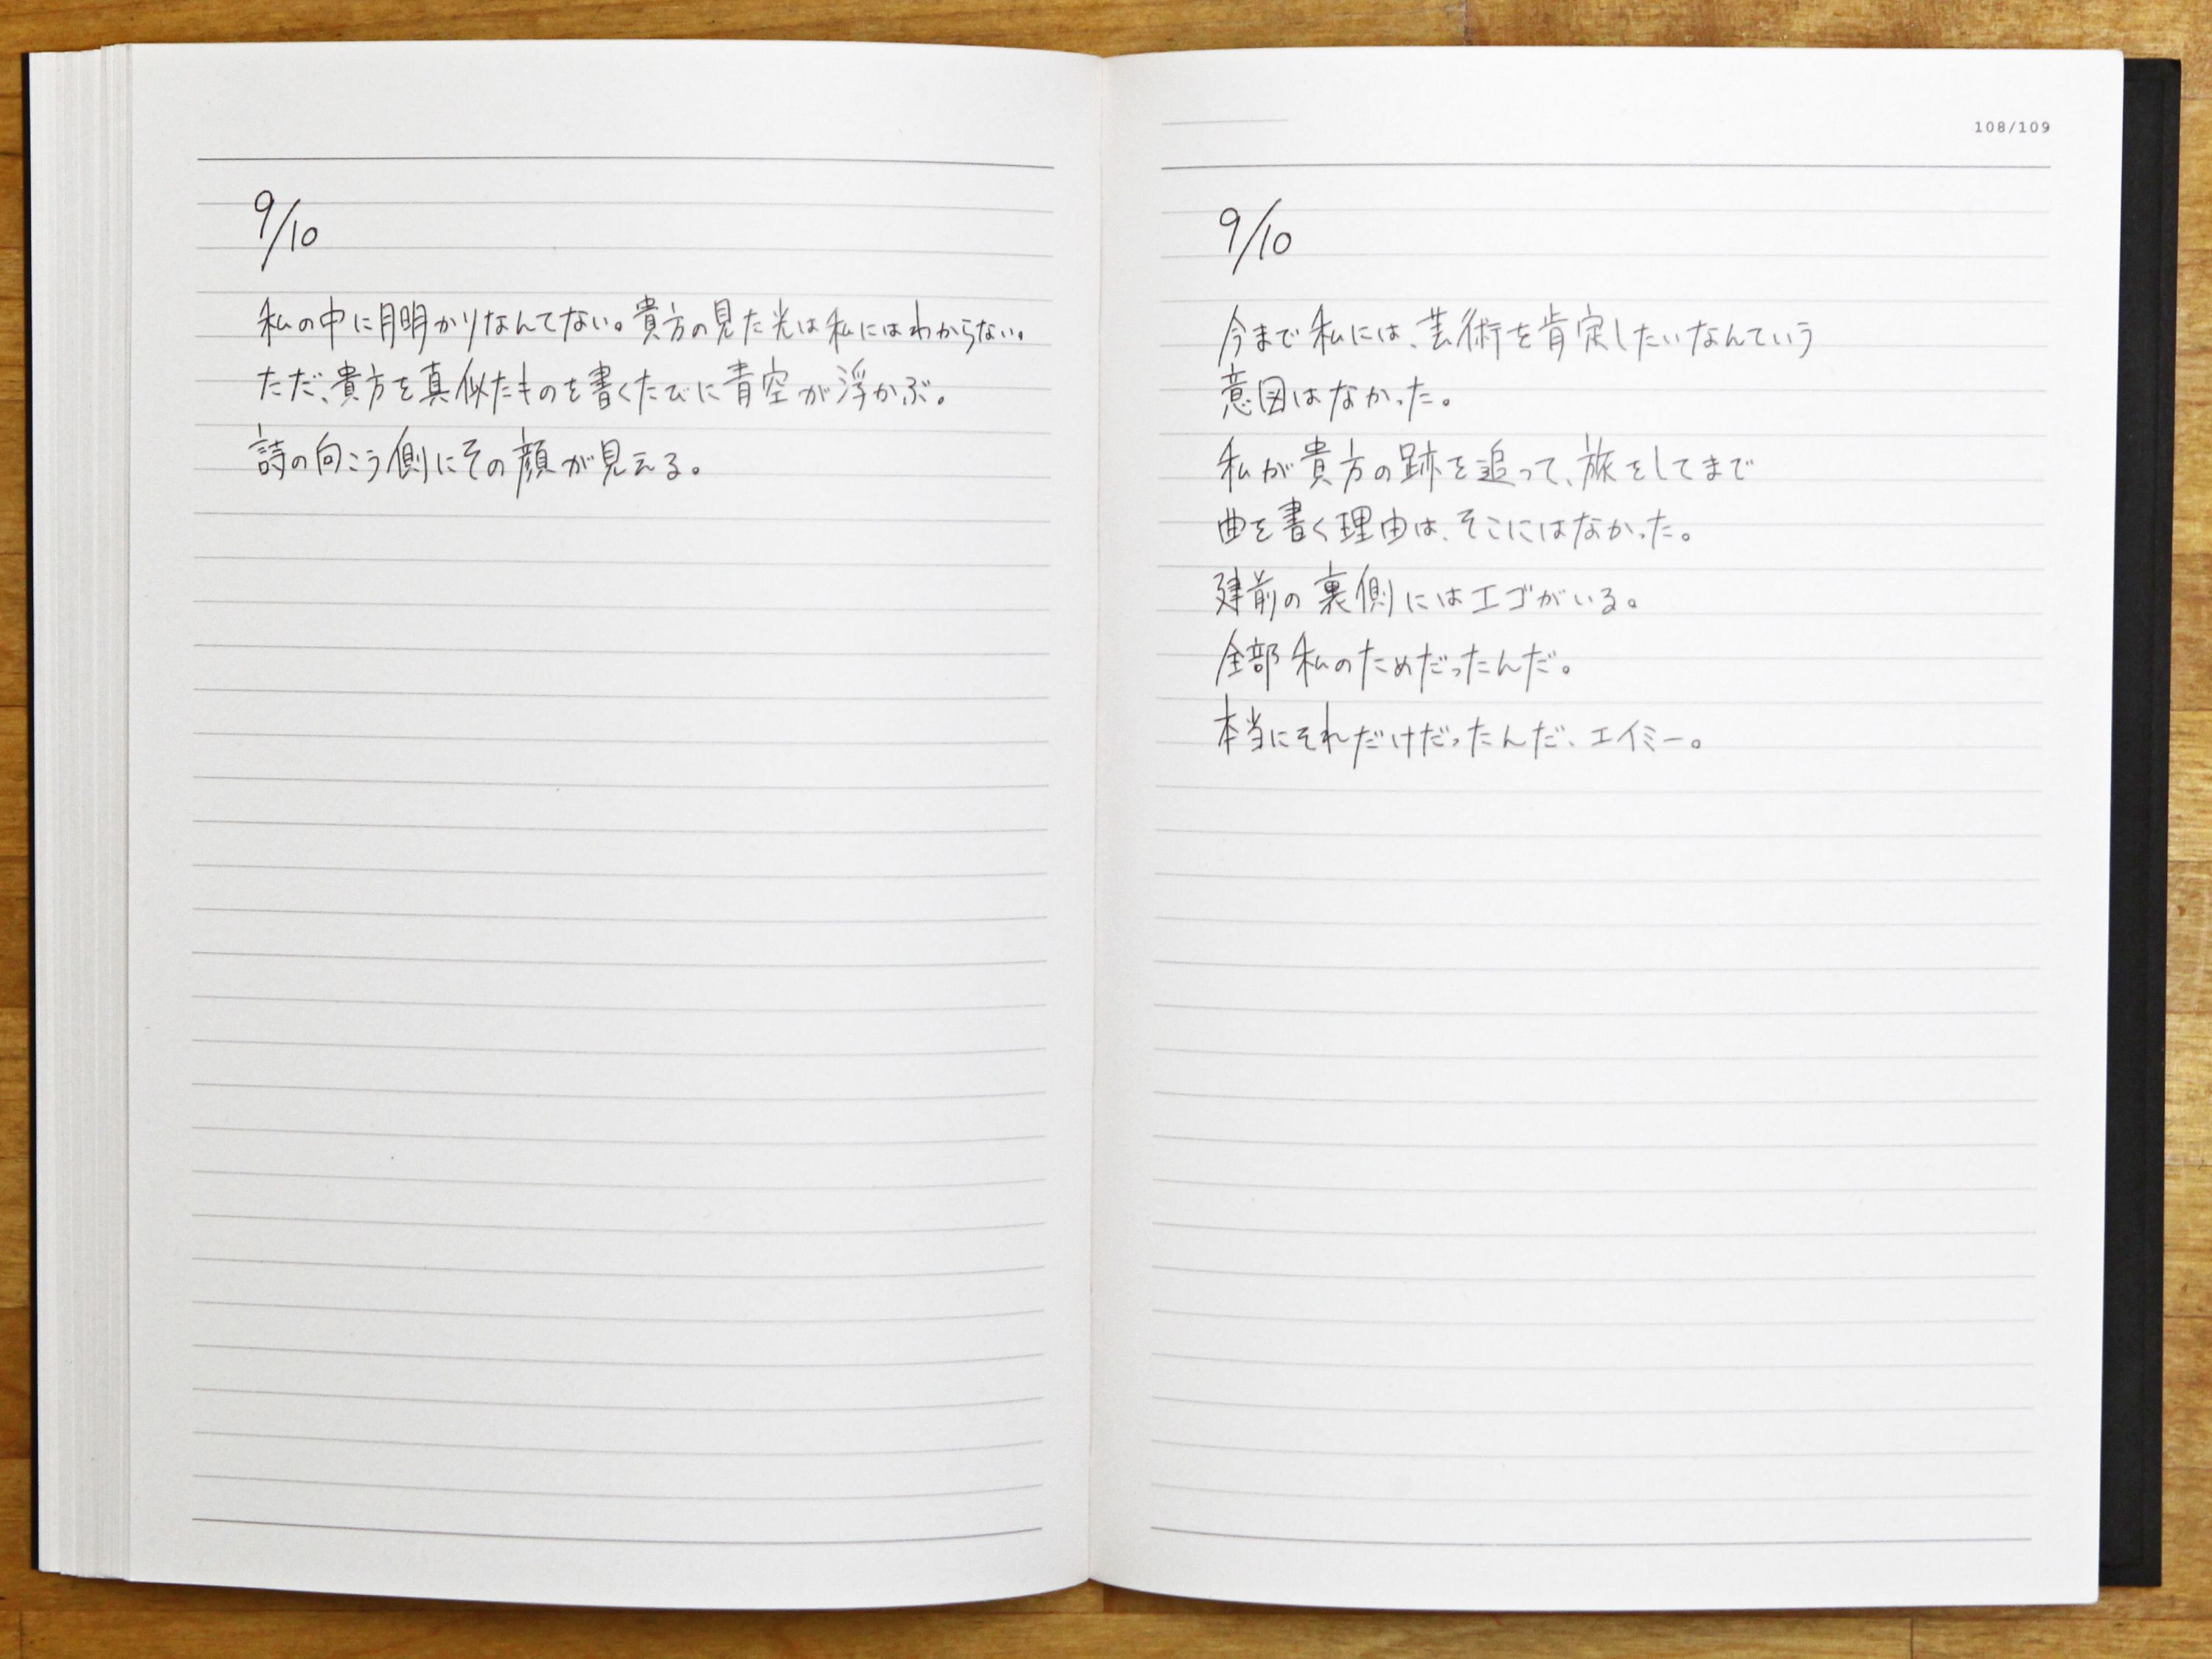 9/10
私の中に月明かりなんてない。貴方の見た光は私にはわからない。
ただ、貴方を真似たものを書くたびに青空が浮かぶ。
詩の向こう側にその顔が見える。
108/109
9/10
今まで私には、芸術を肯定したいなんていう
意図はなかった。
私が貴方の跡を追って、旅をしてまで
曲を書く理由は、そこにはなかった。
建前の裏側にはエゴがいる。
全部私のためだったんだ。
本当にそれだけだったんだ、エイミー。